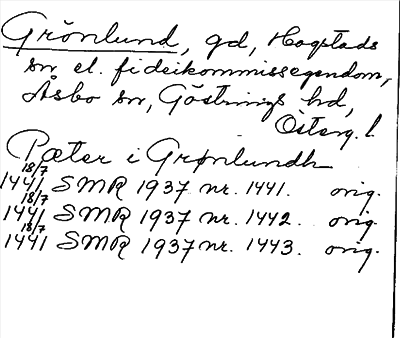 Grönlund, gd, Hogstads
sn el. fideikommissegendom,
Åsbo sn, Göstrings hd,
Österg. l.
Pæter i Grønlundh
18/7 1441 SMR 1937 nr. 1441. orig.
18/7 1441 SMR 1937 nr. 1442. orig.
18/7 1441 SMR 1937 nr. 1443. orig.